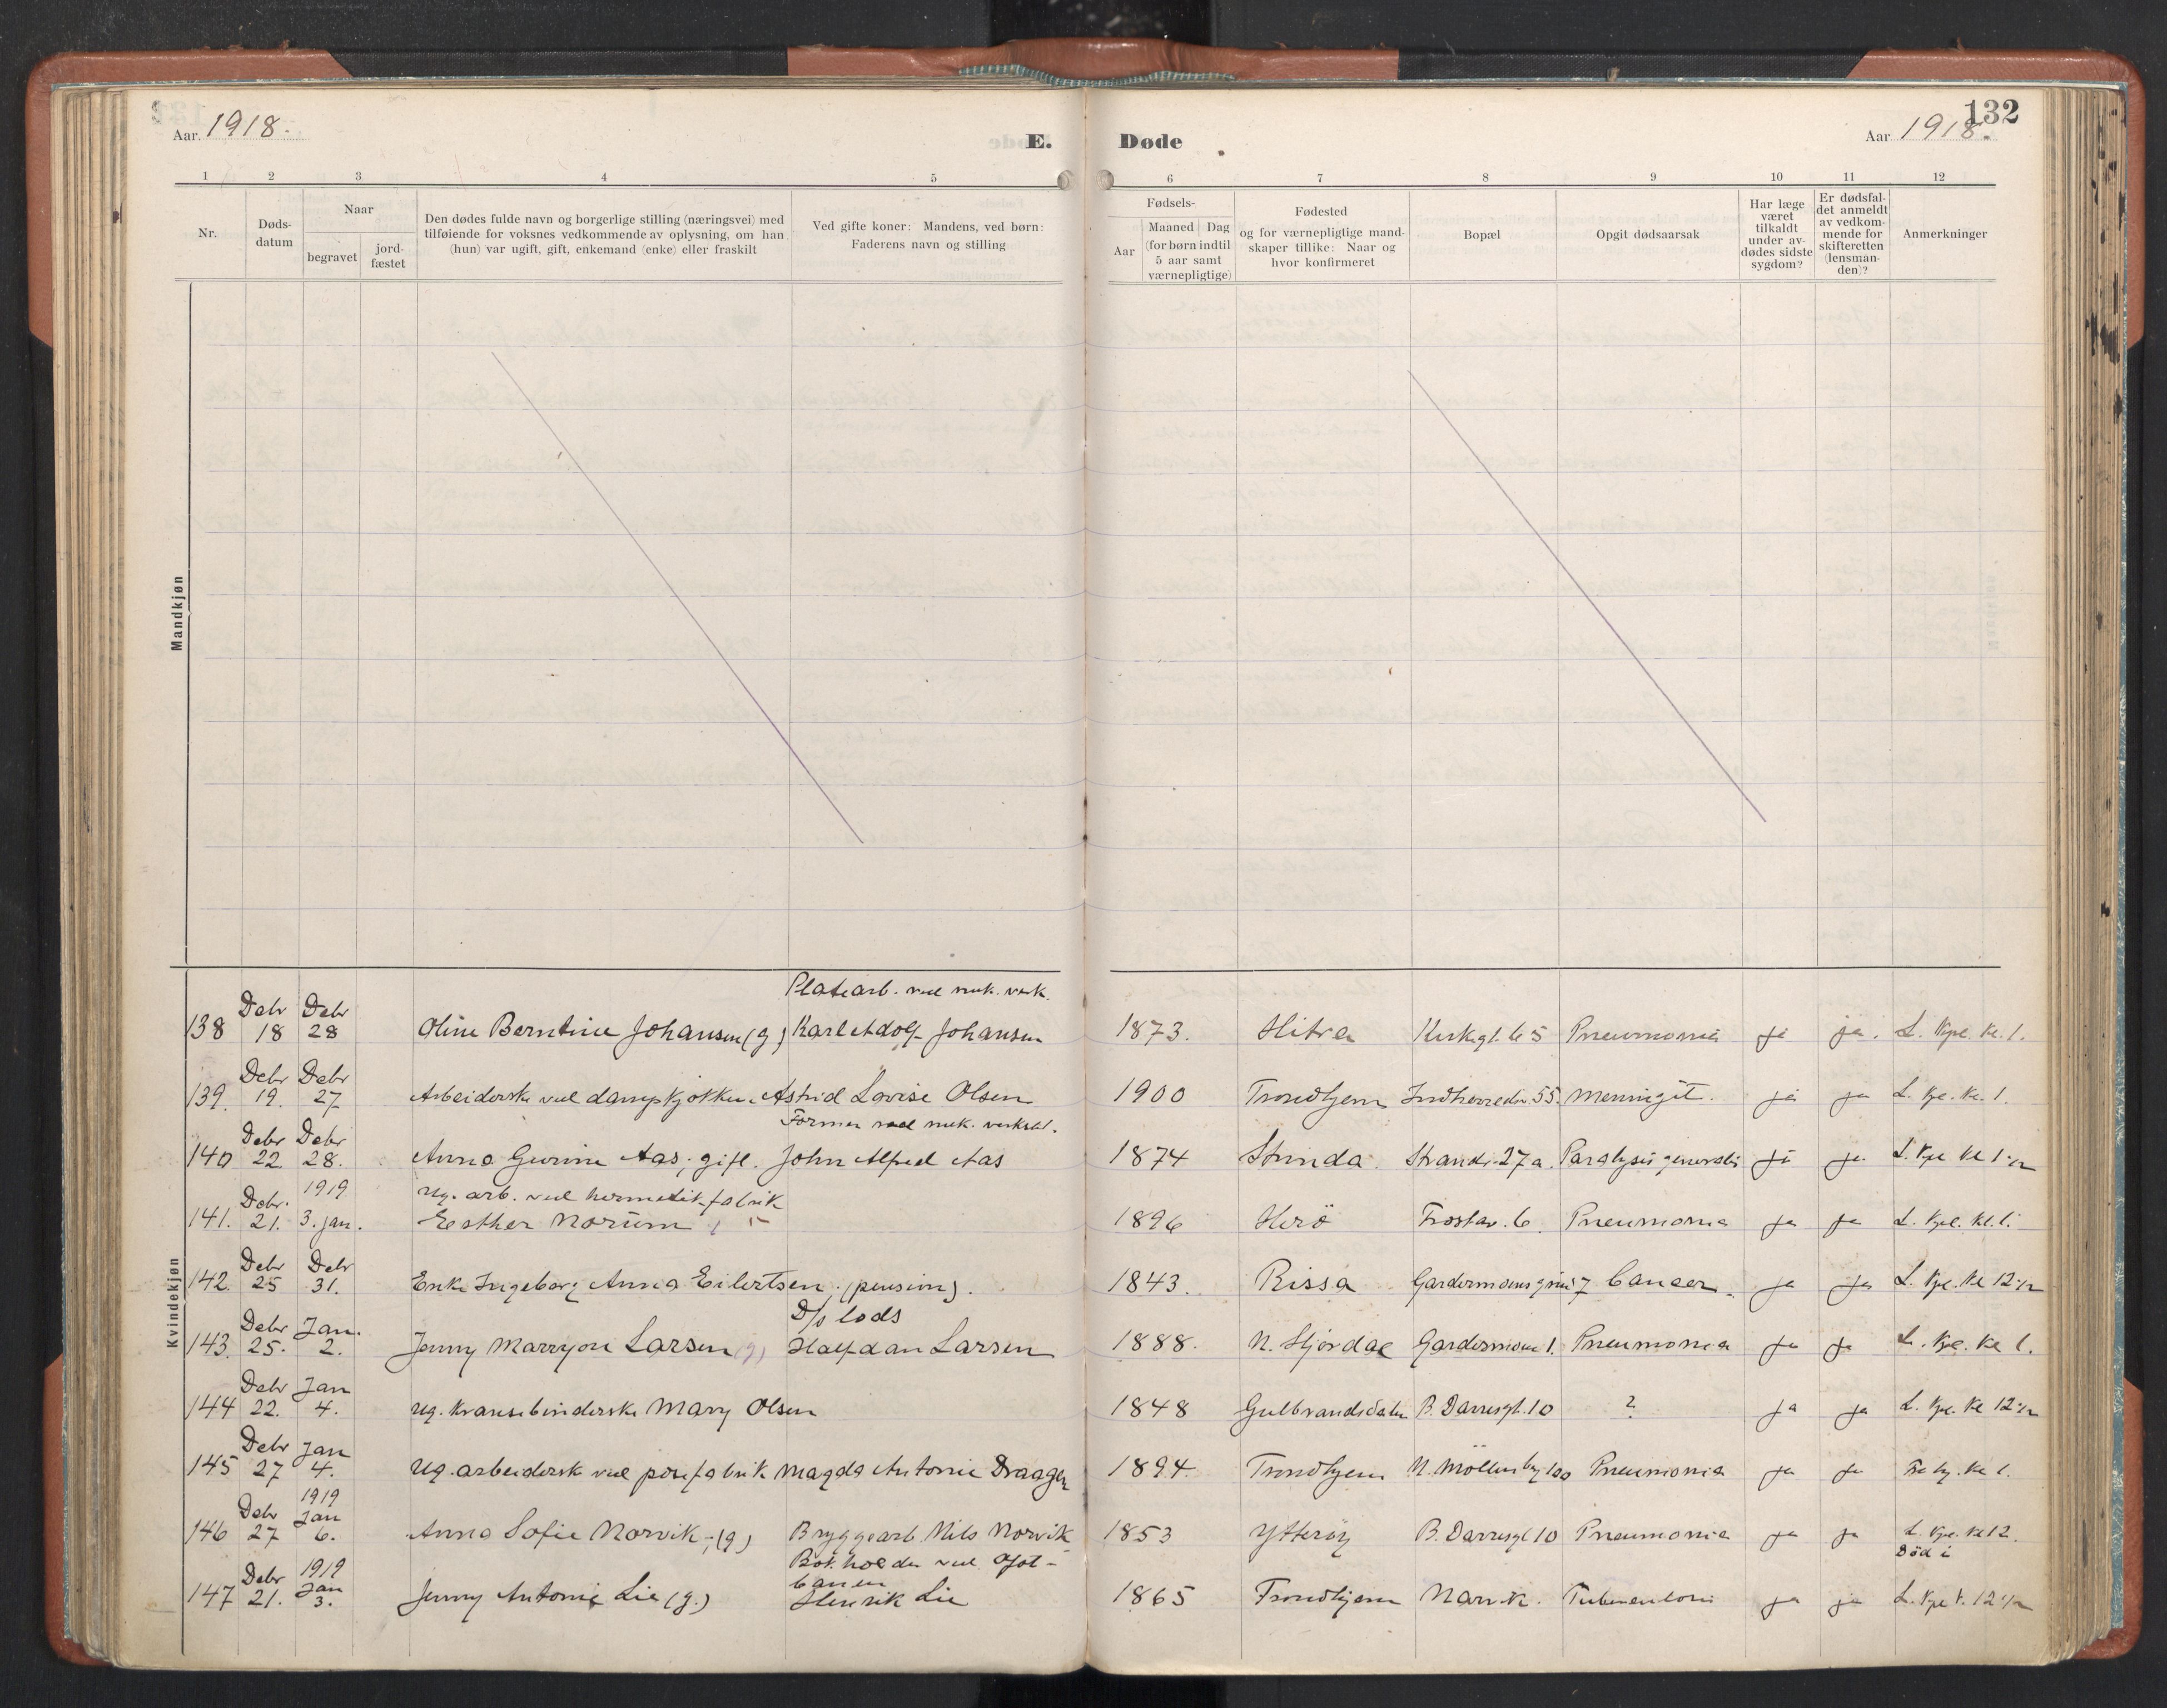 132
Aar. 1918.
E. Døde
Aar 1918.
1 2 3 4 5 6 7 8 9 10 11 12
Nr.
Døds-
datum
Naar
begravet
jord-
fæstet
Den dødes fulde navn og borgerlige stilling (næringsvei) med
tilføiende for voksnes vedkommende av oplysning, om han
(hun) var ugift, gift, enkemand (enke) eller fraskilt
Ved gifte koner: Mandens, ved børn:
Faderens navn og stilling
Fødsels-
Aar
Maaned Dag
(for børn indtil
5 aar samt
værnepligtige)
Fødested
og for værnepligtige mand-
skaper tillike: Naar og
hvor konfirmeret
Bopæl
Opgit dødsaarsak
Har læge
været
tilkaldt
under av-
dødes sidste
sygdom?
Er dødsfal-
det anmeldt
av vedkom-
mende for
skifteretten
(lensman-
den)?
Anmerkninger
Mandkjøn
Kvindekjøn
Platearb. ved mek. verk.
Debr Debr
138 18 28 Oline Berntine Johansen (g) Karl Adolf Johansen 1873. Hitra Kirkegt. 65 Pneumonia ja ja. L. Kpl. Kl. 1.
Debr Debr
139. 19. 27 Arbeiderske ved dampkjøkken Astrid Lovise Olsen 1900 Trondhjem Indherredsv. 55. Meningit. ja ja L. Kpl. Kl. 1.
Former ved mek. verksted.
Debr Debr
140 22 28. Anna Gurine Aas; gift. John Alfred Aas 1874 Strinda. Strandv. 27a. Paralysis generalis ja ja. L. Kpl Kl 1 1/2
1919 Ug. arb. ved hermetikfabrik
Debr.
141. 21. 3. jan. Esther Norum 1896 Herö Frostav. 6. Pneumonia ja ja L. Kpl. Kl. 1.
Debr Debr
142. 25 31. Enke Ingeborg Anna Eilertsen; (pension). 1843. Rissa Gardermoens gt 7 Cancer. ja ja L. Kpl. Kl 12 1/2
D/s lods
Debr Jan.
143. 25. 2. Jenny Marryon Larsen (g) Halfdan Larsen 1888. N. Stjördal Gardermoen 1. Pneumonia ja ja L. Kpl. Kl 1.
Debr Jan
144 22. 4. Ug. Kransebinderske Mary Olsen 1848 Gulbrandsdalen B. Darresgt. 10 ? ja ja L. Kpl. Kl 12 1/2
Debr Jan
145 27 4. Ug. arbeidersk ved posefabrik Magda Antonie Draagen 1894. Trondhjem N. Möllenbg 100 Pneumonia ja ja Kl 1.
1919
Debr Jan
146 27 6. Anna Sofie Norvik; (g) Bryggearb. Nils Norvik 1853 Ytteröy B. Darresgt 10 Pneumonia ja ja L. Kpl. Kl 12.
1919 Bokholder ved Ofot-
Död i
Debr Jan banen
147 21. 3. Jenny Antonie Lie (g.) Henrik Lie 1865 Trondhjem Narvik. Tuberculosis ja ja L. Kpl k. 12 1/2